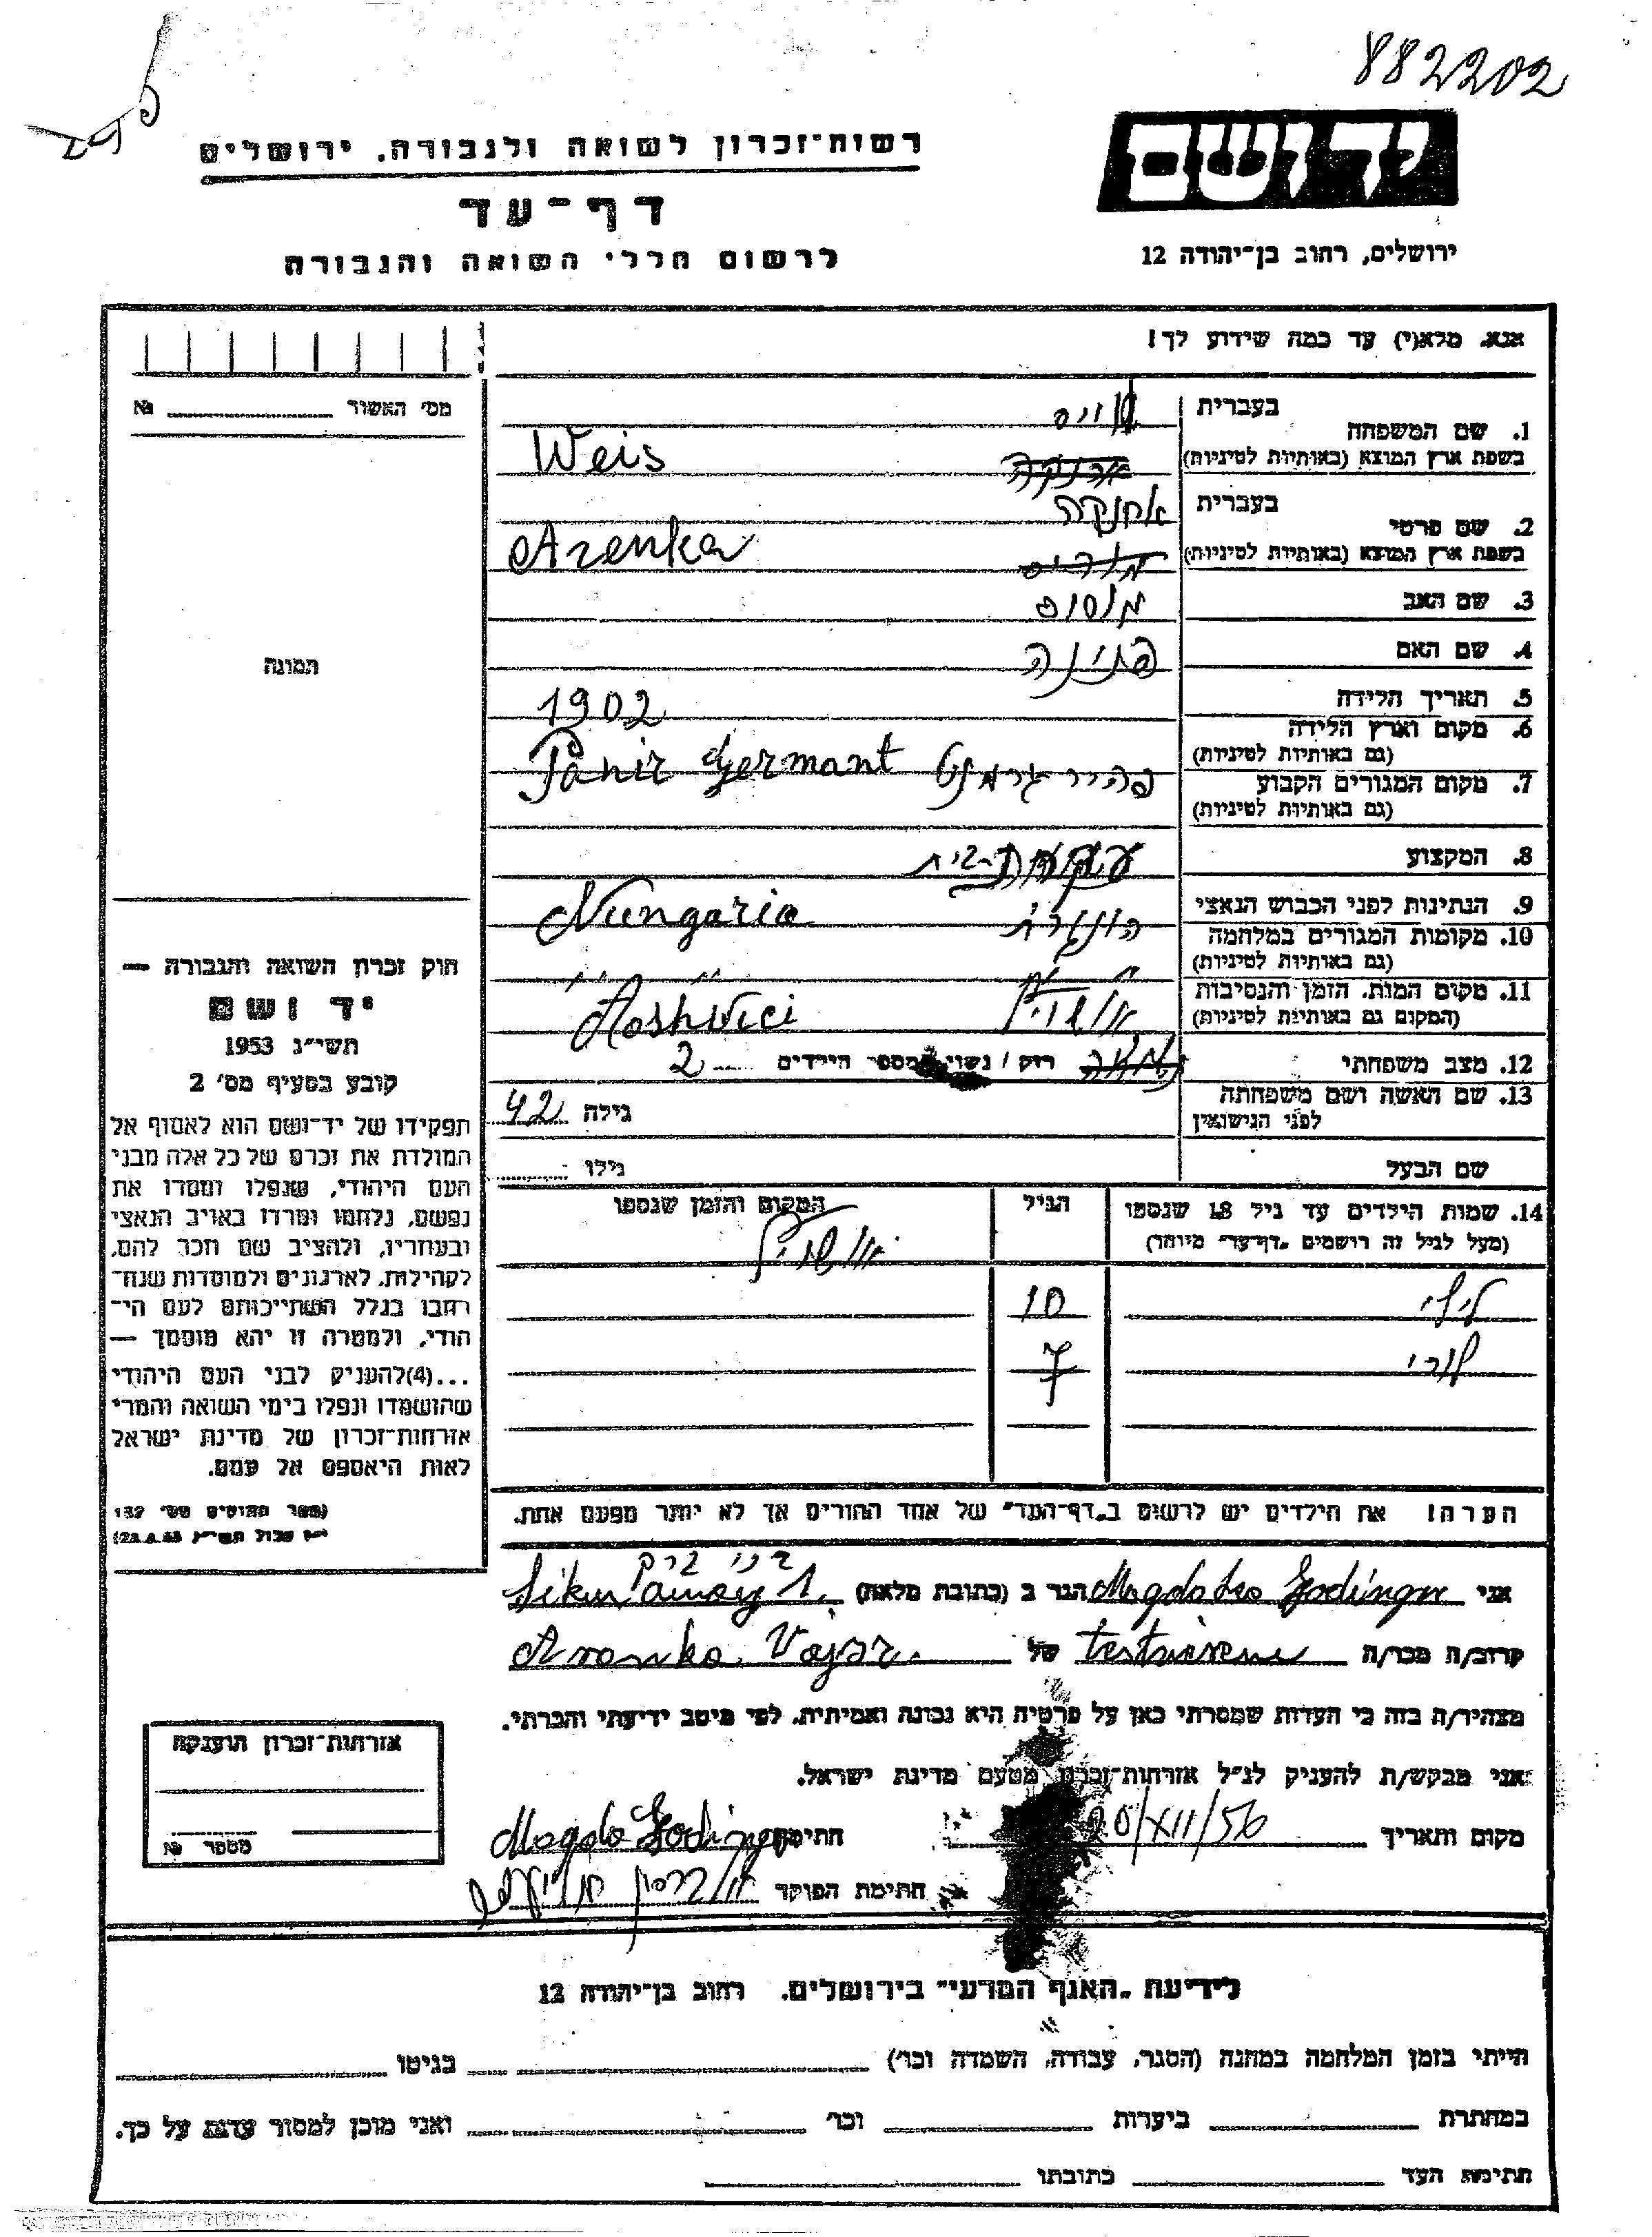 882202
יד ושם
רשות־זכרון לשואה ולגבורה, ירושלים
דף־עד
לרשום חללי השואה והגבורה
ירושלים, רחוב בן־יהודה 12
אנא, מלא(י) עד כמה שידוע לך!
מס׳ האשור № 
1. שם המשפחה
בעברית וייס
בשפת ארץ המוצא (באותיות לטיניות) Weis
2. שם פרטי
בעברית
בשפת ארץ המוצא (באותיות לטיניות) Arenka
3. שם האב
4. שם האם
5. תאריך הלידה 1902
6. מקום וארץ הלידה
(גם באותיות לטיניות) Panir Germant
7. מקום המגורים הקבוע
(גם באותיות לטיניות)
8. המקצוע
9. הנתינות לפני הכבוש הנאצי Nungaria
10. מקומות המגורים במלחמה
(גם באותיות לטיניות) ״ ״
11. מקום המות, הזמן והנסיבות
(המקום גם באותיות לטיניות)
12. מצב משפחתי רוק / נשוי מספר הילדים 2
13. שם האשה ושם משפחתה
לפני הנישואין גילה 42
שם הבעל גילו
14. שמות הילדים עד גיל 18 שנספו הגיל המקום והזמן שנספו
(מעל לגיל זה רושמים „דף־עד״ מיוחד)
לילי 10
7
תמונה
חוק זכרון השואה והגבורה —
יד ושם
תשי״ג 1953
קובע בסעיף מס׳ 2
תפקידו של יד־ושם הוא לאסוף אל
המולדת את זכרם של כל אלה מבני
העם היהודי, שנפלו ומסרו את
נפשם, נלחמו ומרדו באויב הנאצי
ובעוזריו, ולהציב שם וזכר להם,
לקהילות, לארגונים ולמוסדות שנח־
רבו בגלל השתייכותם לעם הי־
הודי, ולמטרה זו יהא מוסמך —
...(4) להעניק לבני העם היהודי
שהושמדו ונפלו בימי השואה והמרי
אזרחות־זכרון של מדינת ישראל
לאות היאספם אל עמם.
(ספר החוקים מס׳ 132
הערה! את הילדים יש לרשום ב„דף־העד״ של אחד ההורים אך לא יותר מפעם אחת.
בני ברק
אני הגר ב (כתובת מלאה)
קרוב/ה מכר/ה של
מצהיר/ה בזה כי העדות שמסרתי כאן על פרטיה היא נכונה ואמיתית, לפי מיטב ידיעתי והכרתי.
אני מבקש/ת להעניק לנ״ל אזרחות־זכרון מטעם מדינת ישראל.
מקום ותאריך 20/XII/56 חתימה
חתימת הפוקד
אזרחות־זכרון תוענקה
מספר №
לידיעת „האגף המדעי״ בירושלים, רחוב בן־יהודה 12
הייתי בזמן המלחמה במחנה (הסגר, עבודה, השמדה וכו׳) בגיטו
במחתרת ביערות וכו׳ ואני מוכן למסור עדות על כך.
חתימת העד כתובתו